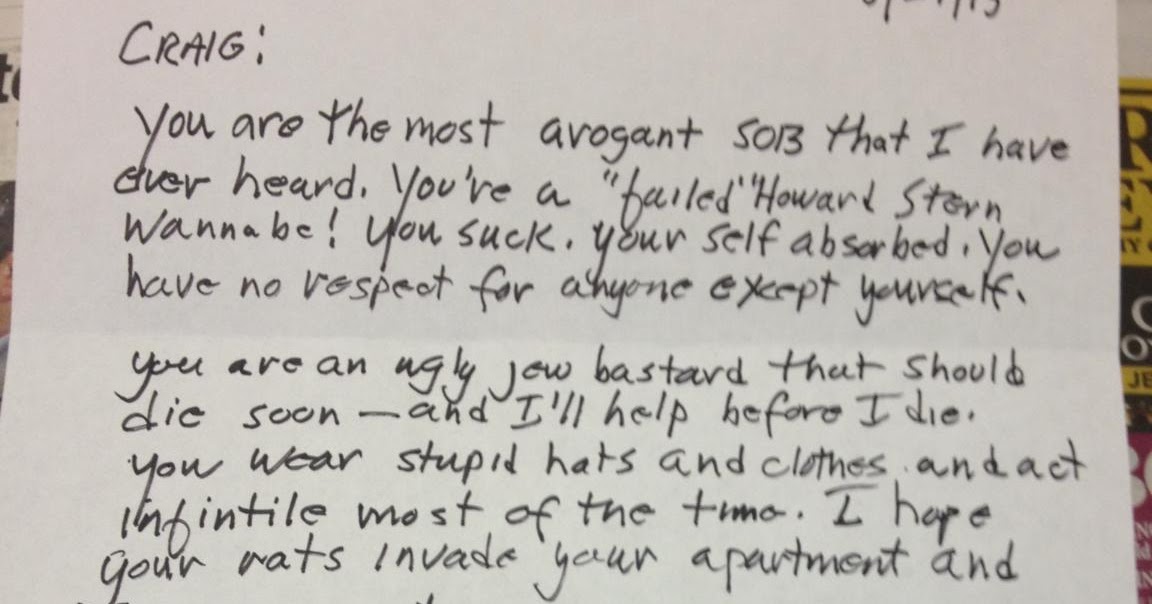 CRAIG:
You are the most arogant SOB that I have
ever heard. You're a "failed" "Howard Stern
Wannabe! You suck. your self absorbed. You
have no respect for anyone except yourself.
you are an ugly jew bastard that should
die soon — and I'll help before I die.
you wear stupid hats and clothes and act
infintile most of the time. I hope
your rats invade your apartment and